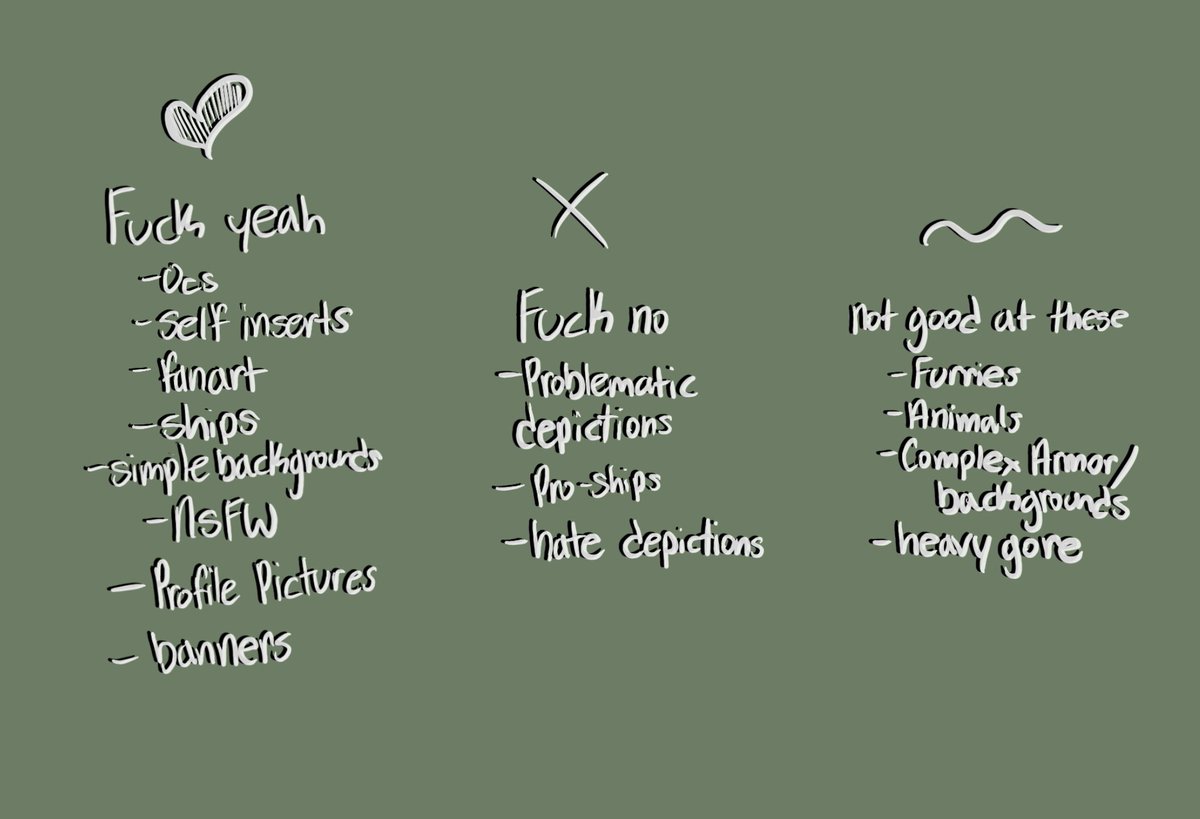 Fuck yeah
-Ocs
-Self inserts
-fanart
-ships
-simple backgrounds
-NSFW
-Profile Pictures
-banners
Fuck no
-Problematic
depictions
-Pro-ships
-hate depictions
not good at these
-Furries
-Animals
-Complex Armor/
backgrounds
-heavy gore